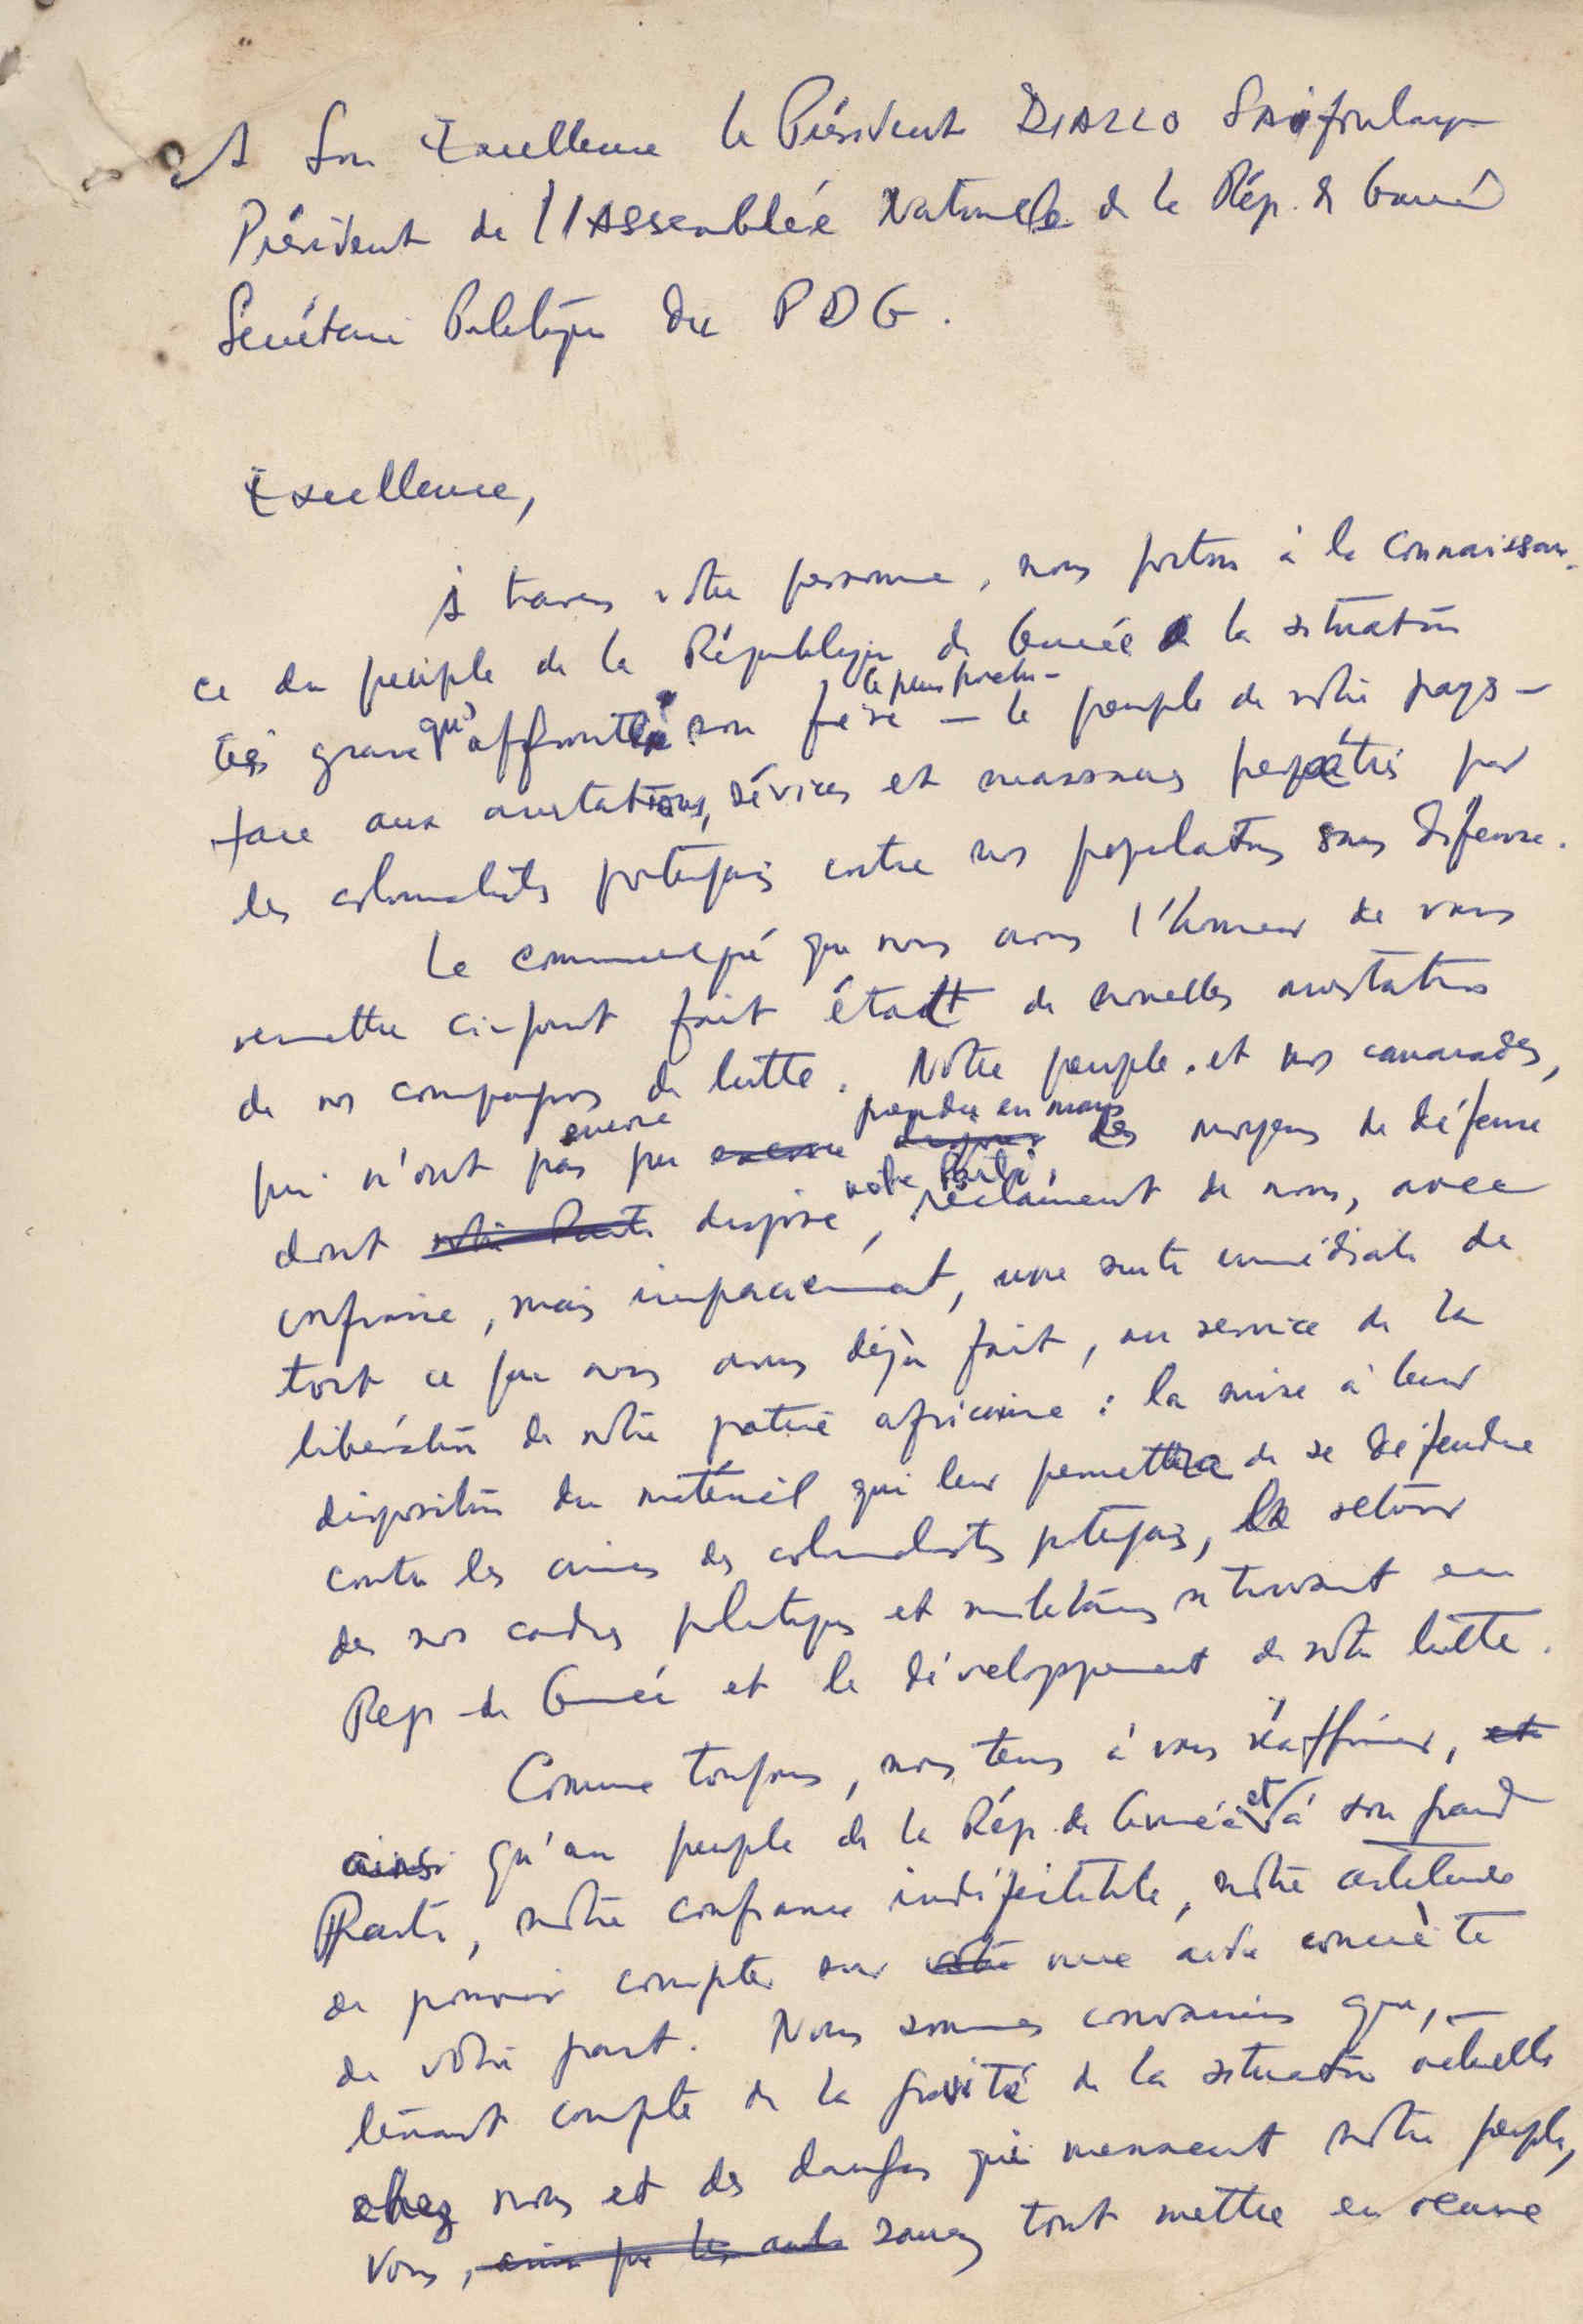 A Son Excellence le Président DIALLO Saïfoulaye
Président de l'Assemblée Nationale de la Rép. de Guinée
Secrétaire Politique du PDG.
Excellence,
A travers votre personne, nous portons à la connaissan-
ce du peuple de la République de Guinée la situation
très grave qu'affronte son frère le plus proche — le peuple de notre pays —
face aux arrestations, sévices et massacres perpétrés par
les colonialistes portugais contre nos populations sans défense.
Le communiqué que nous avons l'honneur de vous
remettre ci-joint fait état de nouvelles arrestations
de nos compagnons de lutte. Notre peuple et nos camarades,
qui n'ont pas encore pu prendre en mains les moyens de défense
dont dispose notre Parti, réclament de nous, avec
confiance, mais impaciemment, une suite immédiate de
tout ce que nous avons déjà fait, au service de la
libération de notre patrie africaine : la mise à leur
disposition du matériel qui leur permettra de se défendre
contre les crimes des colonialistes portugais, le retour
de nos cadres politiques et militaires se trouvant en
Rep. de Guinée et le développement de notre lutte.
Comme toujours, nous tenons à vous réaffirmer,
ainsi qu'au peuple de la Rép. de Guinée et à son grand
Parti, notre confiance indéfectible, notre certitude
de pouvoir compter sur une aide concrète
de votre part. Nous sommes convaincus que,
tenant compte de la gravité de la situation actuelle
chez nous et des dangers qui menacent notre peuple,
vous, saurez tout mettre en oeuvre